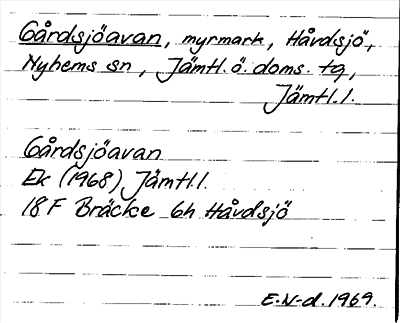 Gårdsjöavan, myrmark, Håvdsjö,
Nyhems sn, Jämtl. ö. doms. tg,
Jämtl. l.
Gårdsjöavan
Ek (1968) Jämtl. l.
18 F Bräcke 6h Håvdsjö
E. N-d. 1969.